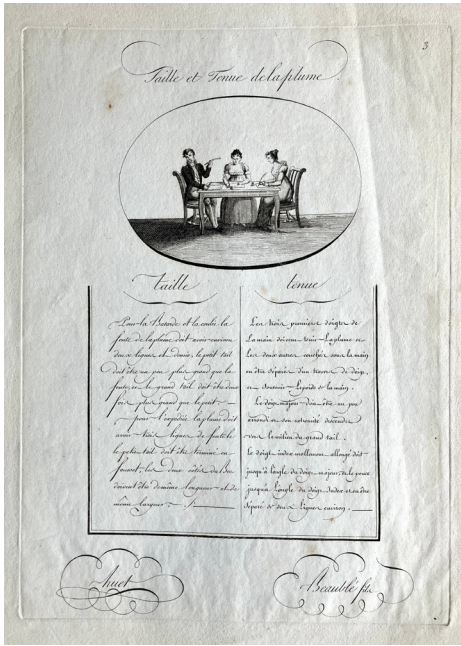 3
Taille et Tenue de la plume.
taille
Pour la Batarde et la coulée la
fente de la plume doit avoir environ
deux lignes et demie, le petit tail
doit être un peu plus grand que la
fente, et le grand tail doit être deux
fois plus grand que le petit.
pour l'expédiée la plume doit
avoir trois lignes de fente le
petit tail doit être
les deux côtés du bec
doivent être de même longueur et de
même largeur.
tenue
Les trois premiers doigts de
la main doivent tenir la plume et
les deux autres couchés sous la main
en être séparés d'un travers de doigt,
et soutenir le poids de la main.
Le doigt major doit être un peu
arrondi et son extrémité descendre
vers le milieu du grand tail.
le doigt index mollement allongé doit
jusqu'à l'angle du doigt major, et le pouce
jusqu'à l'angle du doigt index et en être
séparé de deux lignes environ.
huet
Beaublé fils